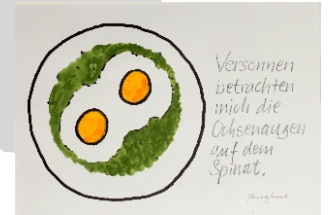 Versonnen
betrachten
mich die
Ochsenaugen
auf dem
Spinat.